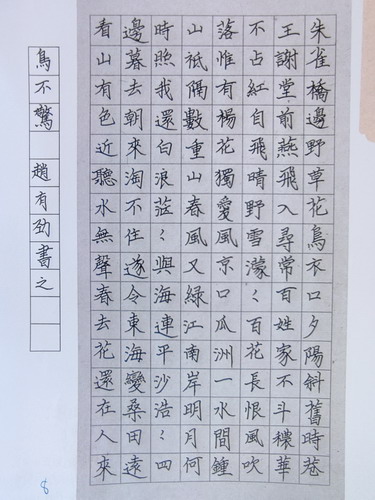 朱雀橋邊野草花烏衣口夕陽斜舊時巷
王謝堂前燕飛入尋常百姓家不斗穠華
不占紅自飛晴野雪濛〻百花長恨風吹
落惟有楊花獨愛風京口瓜洲一水間鍾
山祗隔數重山春風又綠江南岸明月何
時照我還白浪茫〻與海連平沙浩〻四
邊暮去朝來淘不住遂令東海變桑田遠
看山有色近聽水無聲春去花還在人來
鳥不驚 趙有劲書之
8